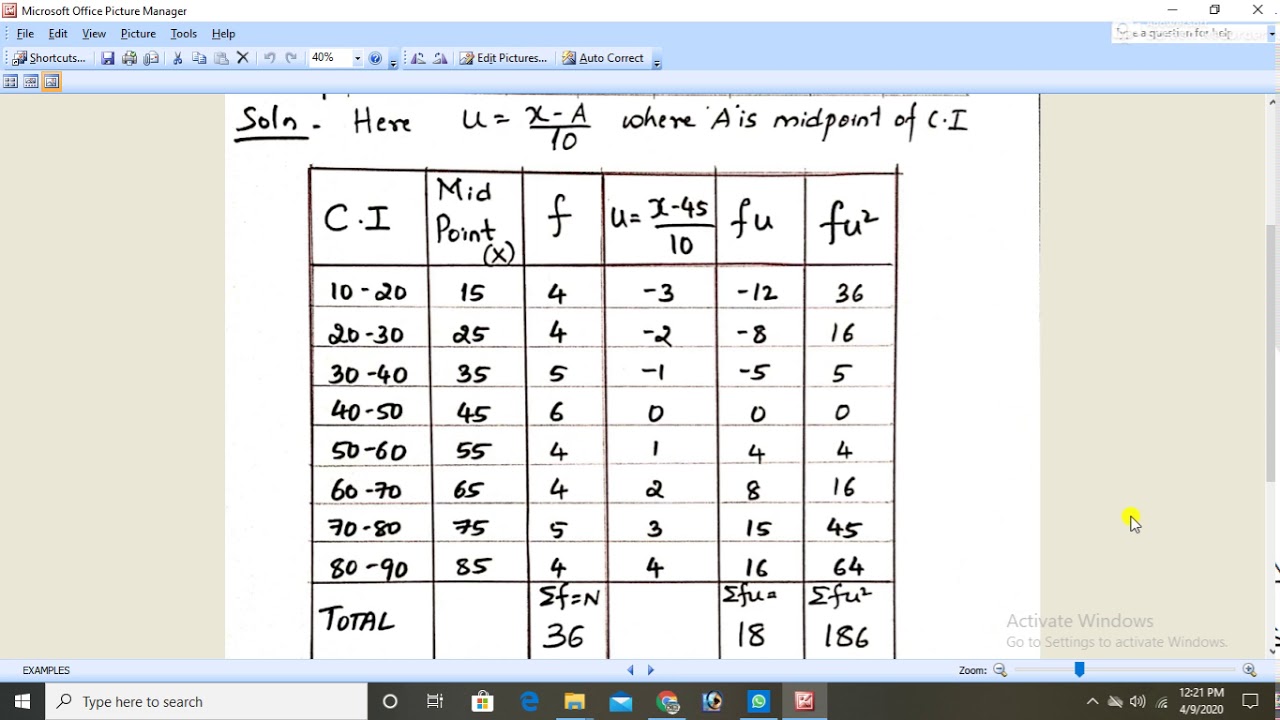 Microsoft Office Picture Manager
File Edit View Picture Tools Help
Shortcuts... 40% Edit Pictures... Auto Correct
Soln. Here u = x-A/10 where 'A' is midpoint of C.I
C.I Mid Point (x) f u= x-45/10 fu fu²
10-20 15 4 -3 -12 36
20-30 25 4 -2 -8 16
30-40 35 5 -1 -5 5
40-50 45 6 0 0 0
50-60 55 4 1 4 4
60-70 65 4 2 8 16
70-80 75 5 3 15 45
80-90 85 4 4 16 64
TOTAL Σf=N 36 Σfu= 18 Σfu² 186
Activate Windows
Go to Settings to activate Windows.
EXAMPLES Zoom:
Type here to search 12:21 PM
4/9/2020